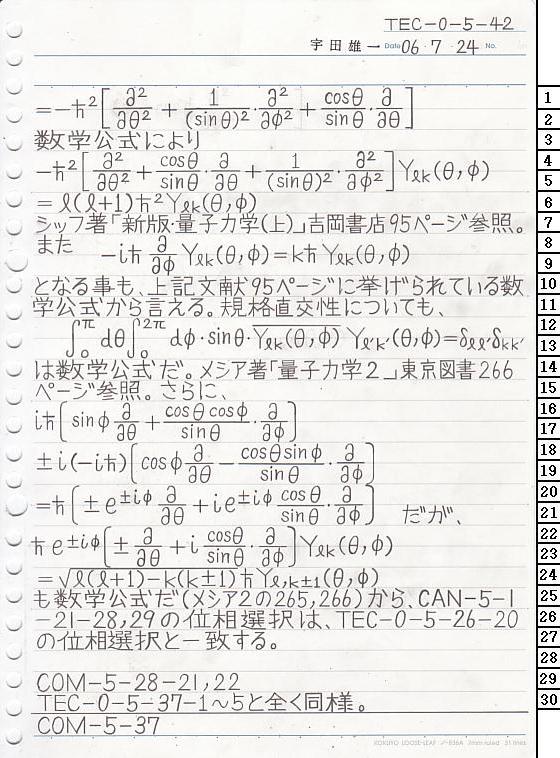 TEC-0-5-42
宇田雄一 Date 06・7・24 No.
=-ħ²[∂²/∂θ² + 1/(sinθ)²・∂²/∂φ² + cosθ/sinθ・∂/∂θ]
数学公式により
-ħ²[∂²/∂θ² + cosθ/sinθ・∂/∂θ + 1/(sinθ)²・∂²/∂φ²]Yℓk(θ,φ)
=ℓ(ℓ+1)ħ²Yℓk(θ,φ)
シッフ著「新版・量子力学(上)」吉岡書店95ページ参照。
また -iħ ∂/∂φ Yℓk(θ,φ)=kħYℓk(θ,φ)
となる事も、上記文献95ページに挙げられている数
学公式から言える。規格直交性についても、
∫₀^π dθ∫₀^2π dφ・sinθ・\overline{Yℓk(θ,φ)} Yℓ'k'(θ,φ)=δℓℓ'δkk'
は数学公式だ。メシア著「量子力学2」東京図書266
ページ参照。さらに、
iħ[sinφ ∂/∂θ + cosθcosφ/sinθ・∂/∂φ]
±i(-iħ)[cosφ ∂/∂θ - cosθsinφ/sinθ・∂/∂φ]
=ħ[±e^{±iφ} ∂/∂θ + ie^{±iφ} cosθ/sinθ・∂/∂φ] だが、
ħe^{±iφ}[±∂/∂θ + i cosθ/sinθ・∂/∂φ]Yℓk(θ,φ)
=√ℓ(ℓ+1)-k(k±1) ħYℓ,k±1(θ,φ)
も数学公式だ(メシア2の265,266)から、CAN-5-1
-21-28,29の位相選択は、TEC-0-5-26-20
の位相選択と一致する。
COM-5-28-21,22
TEC-0-5-37-1~5と全く同様。
COM-5-37
KOKUYO LOOSE-LEAF ノ-836A 7mm ruled 31 lines
1
2
3
4
5
6
7
8
9
10
11
12
13
14
15
16
17
18
19
20
21
22
23
24
25
26
27
28
29
30